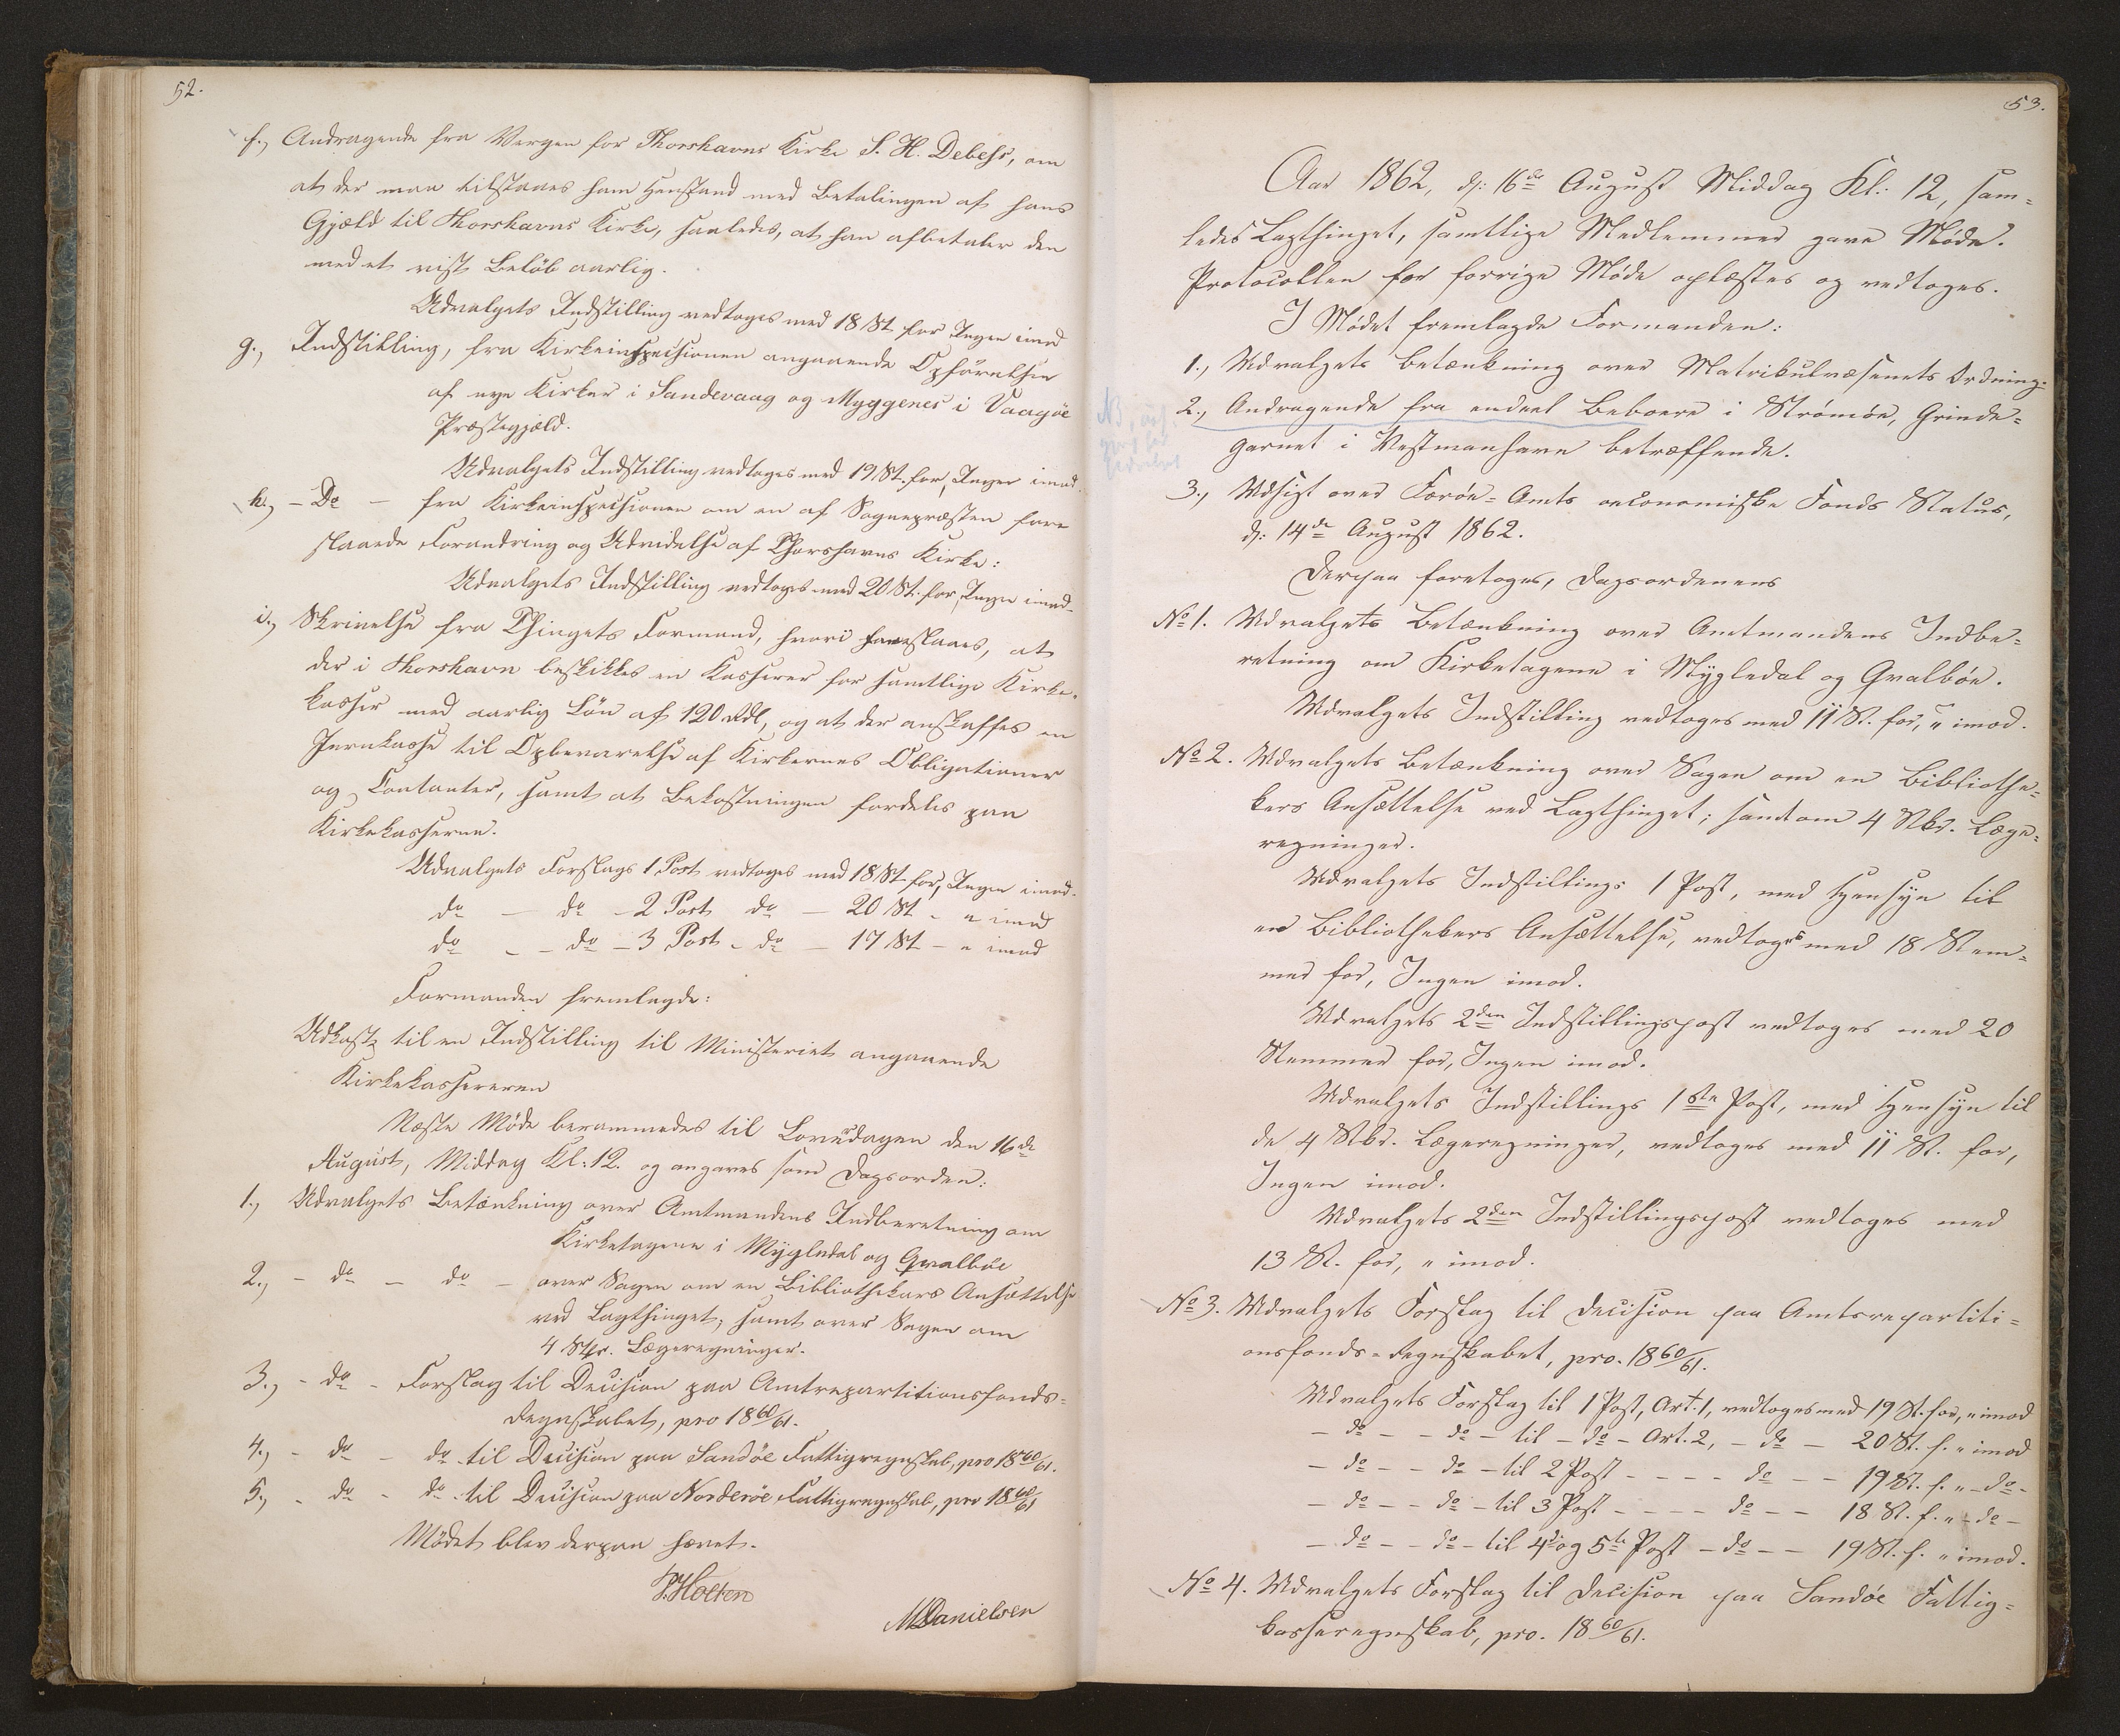 52.
f., Andragende fra Vergen for Thorshavns Kirke S. H. Debess, om
at der maa tilstaaes ham Henstand med Betalingen af hans
Gjæld til Thorshavns Kirke, saaledes, at han afbetaler den
med et vist Beløb aarlig.
Udvalgets Indstilling vedtoges med 18 St. for Ingen imod
g., Indstilling, fra Kirkeinspectionen angaaende Opførelsen
af nye Kirker i Sandevaag og Myggenes i Vaagöe
Præstegjæld.
Udvalgets Indstilling vedtoges med 19 St. for, Ingen imod.
h., - Do - fra Kirkeinspectionen om en af Sognepræsten fore
slaaede Forandring og Udvidelse af Thorshavns Kirke:
Udvalgets Indstilling vedtoges med 20 St. for, Ingen imod.
i., Skrivelse fra Thingets Formand, hvori foreslaaes, at
der i Thorshavn beskikkes en Kasserer for samtlige Kirke-
kasser med aarlig Løn af 120 Rdl, og at der anskaffes en
Jernkasse til Opbevarelse af Kirkernes Obligationer
og Contanter, samt at Bekostningen fordeles paa
Kirkekasserne.
Udvalgets Forslags 1 Post vedtoges med 18 St. for, Ingen imod.
do - do - 2 Post do - 20 St - " imod
do - - do - 3 Post - do - 17 St - " imod
Formanden fremlagde:
Udkast til en Indstilling til Ministeriet angaaende
Kirkekassereren
Næste Møde berammedes til Loverdagen den 16de
August, Middag Kl: 12. og angaves som Dagsorden:
1., Udvalgets Betænkning over Amtmandens Indberetning om
Kirketagene i Mygledal og Qvalböe
2., - do - do - over Sagen om en Bibliothekars Ansættelse
ved Lagthinget, samt over Sagen om
4 Stkr. Lægeregninger.
3., - do - Forslag til Decision paa Amtrepartitionsfonds-
Regnskabet, pro 1860/61.
4., - do - do til Decision paa Sandöe Fattigregnskab, pro 1860/61.
5., - do - do til Decision paa Norderöe Fattigregnskab, pro 1860/61
Mödet blev derpaa hævet.
P. Holten
MDanielsen
53.
Aar 1862, d: 16de August Middag Kl: 12, sam-
ledes Lagthinget, samtlige Medlemmer gave Møde.
Protocollen for forrige Møde oplæstes og vedtoges.
I Mødet fremlagde Formanden:
1., Udvalgets Betænkning over Matrikulvæsenets Ordning.
NB,
2., Andragende fra endeel Beboere i Strømøe, Grinde-
garnet i Vestmanhavn betræffende.
3., Udsigt over Færøe-Amts oeconomiske Fonds Status,
d: 14de August 1862.
Derpaa foretoges, Dagsordenens
No 1. Udvalgets Betænkning over Amtmandens Indbe-
retning om Kirketagene i Mygledal og Qvalbøe.
Udvalgets Indstilling vedtoges med 11 St. for, " imod.
No 2. Udvalgets Betænkning over Sagen om en Bibliothe-
kers Ansættelse ved Lagthinget; samt om 4 Stkr. Læge-
regninger.
Udvalgets Indstillings 1 Post, med Hensyn til
en Bibliothekers Ansættelse, vedtoges med 18 Stem-
mer for, Ingen imod.
Udvalgets 2den Indstillingspost vedtoges med 20
Stemmer for, Ingen imod.
Udvalgets Indstillings 1ste Post, med Hensyn til
de 4 Stkr. Lægeregninger, vedtoges med 11 St. for,
Ingen imod.
Udvalgets 2den Indstillingspost vedtoges med
13 St. for, " imod.
No 3. Udvalgets Forslag til Decision paa Amtsrepartiti-
onsfonds-Regnskabet, pro. 1860/61.
Udvalgets Forslag til 1 Post, Art. 1, vedtoges med 19 St. for, " imod
- do - - do - til - do - Art. 2, - do - 20 St. f. " imod
- do - - do - til 2 Post - - - - do - - 19 St. f. " - do -
- do - - do - til 3 Post - - - - do - - 18 St. f. " - do -
- do - - do - til 4de og 5te Post - do - - 19 St. f. " imod.
No 4. Udvalgets Forslag til Decision paa Sandøe Fattig-
kasseregnskab, pro. 1860/61.